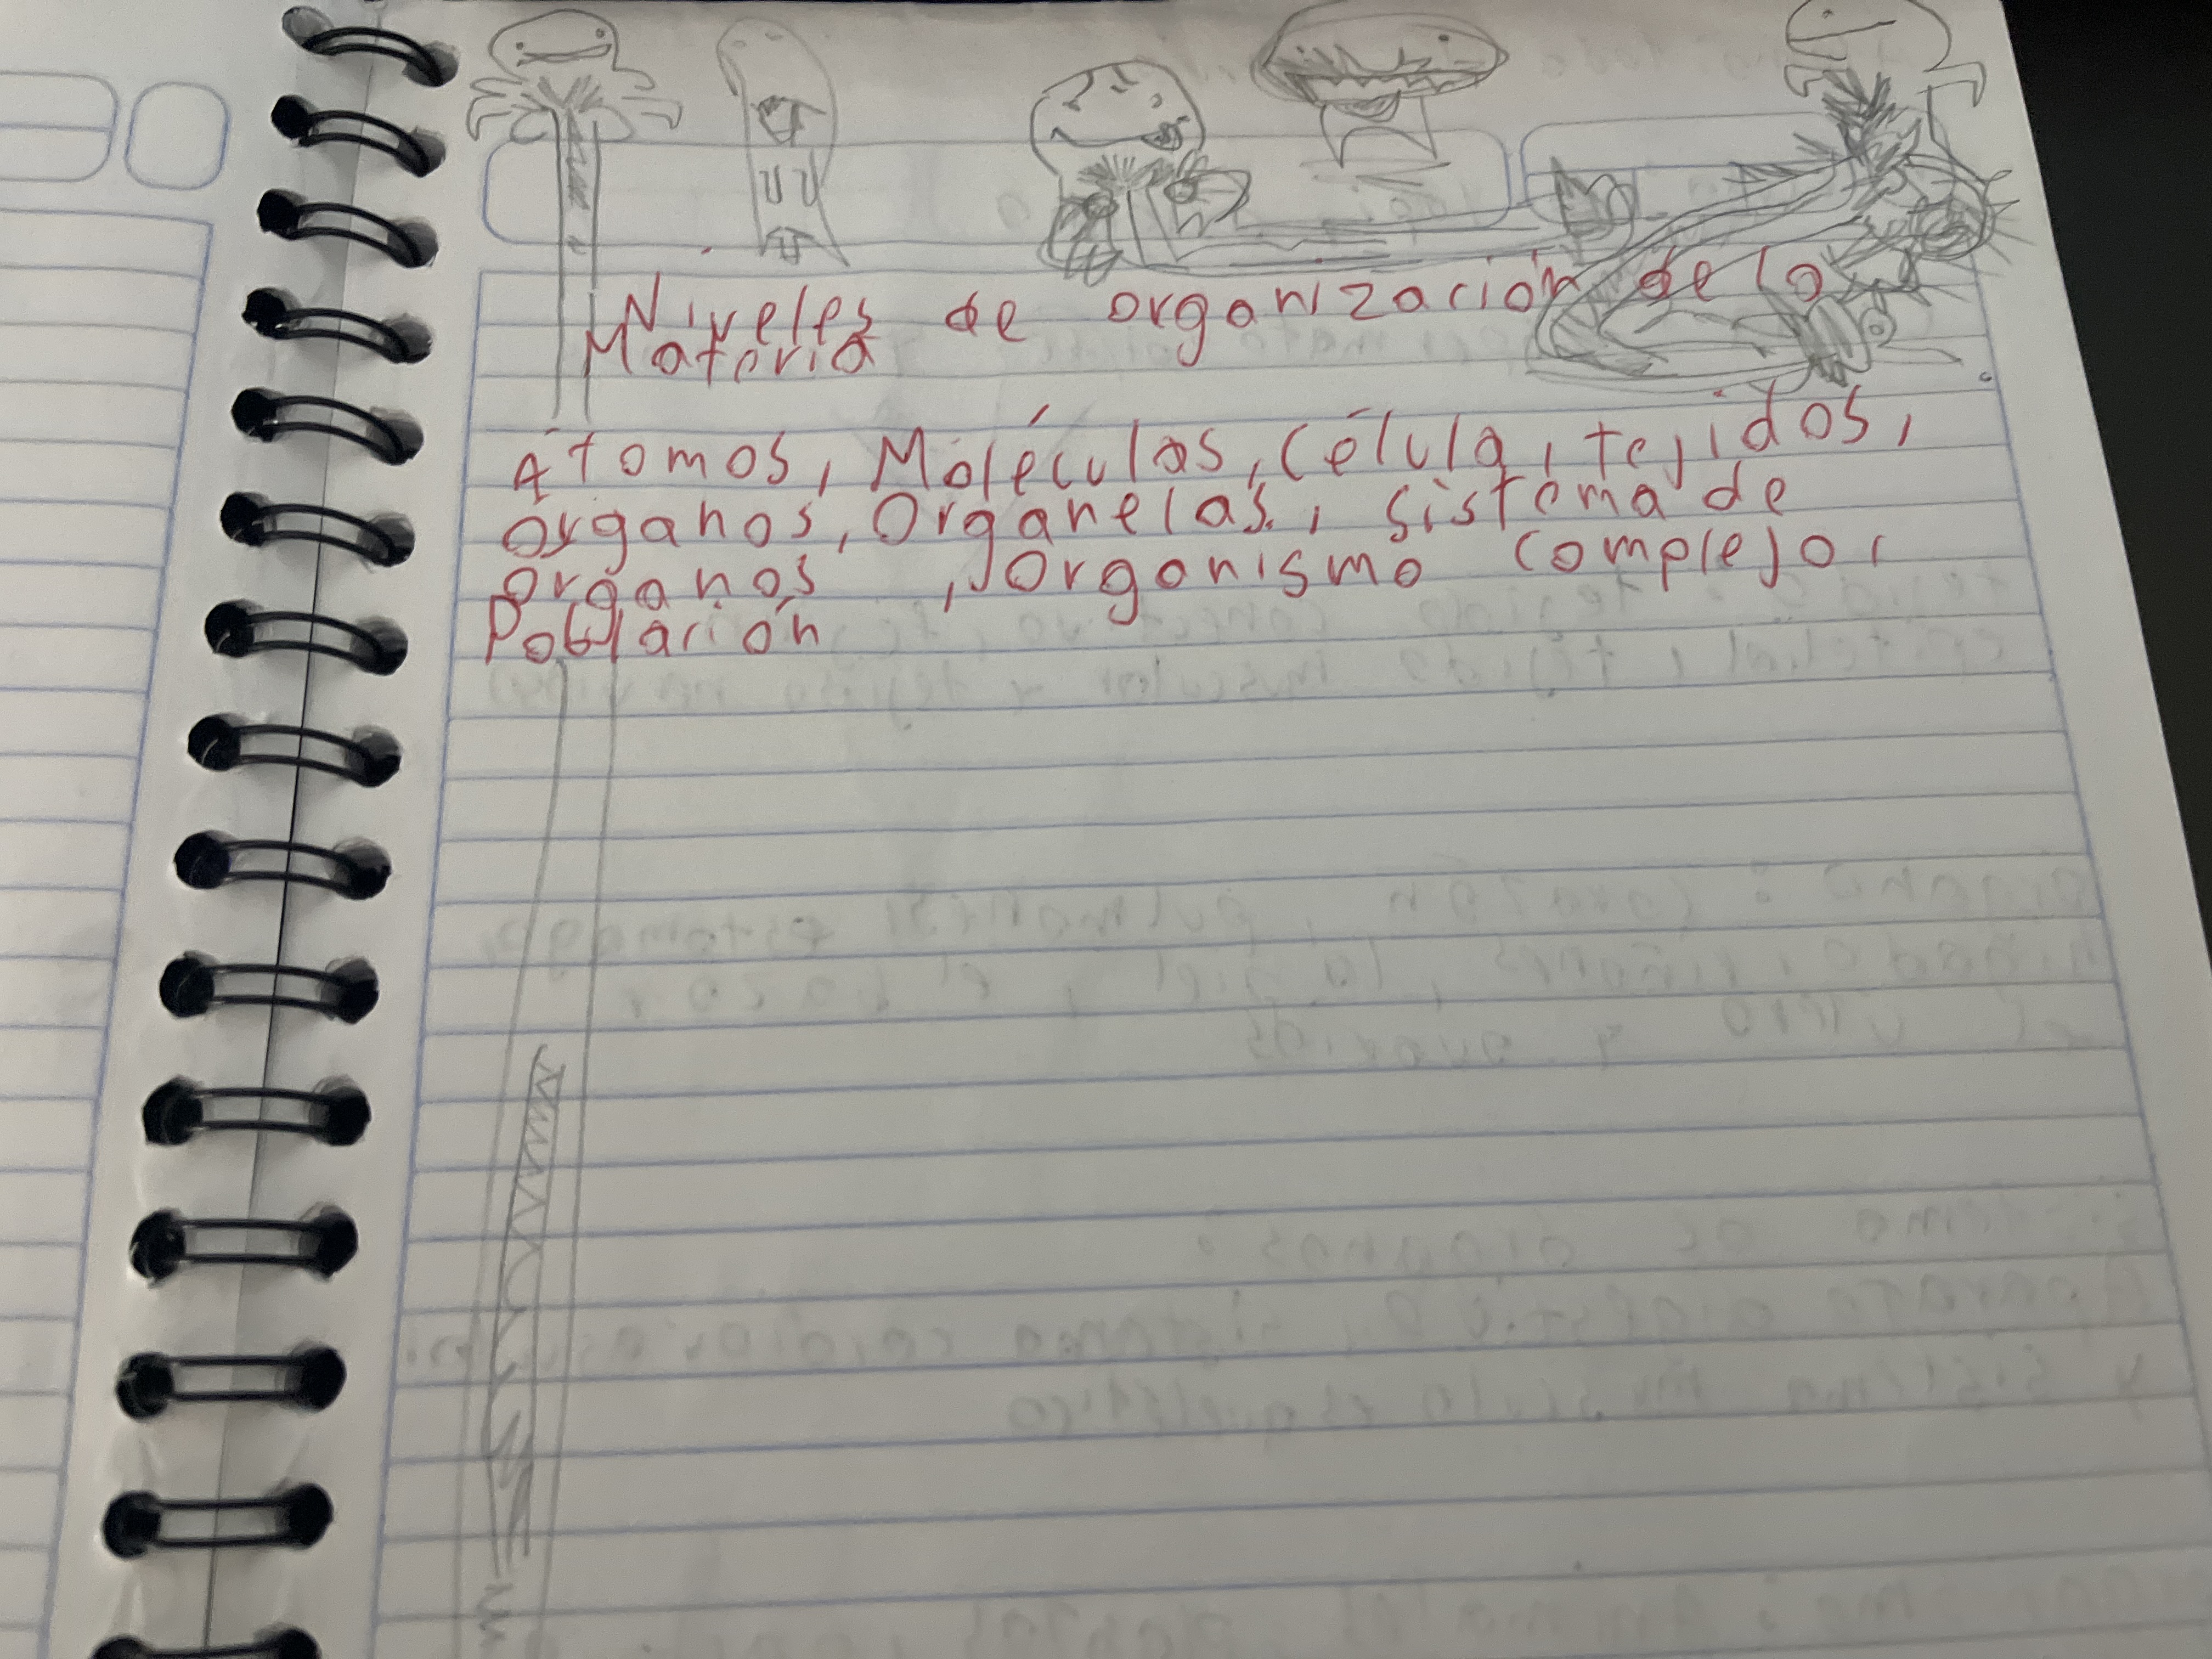 Niveles de organización de la
Materia
Átomos, Moléculas, Célula, tejidos,
órganos, Organelas, sistema de
organos , Organismo complejo,
Población